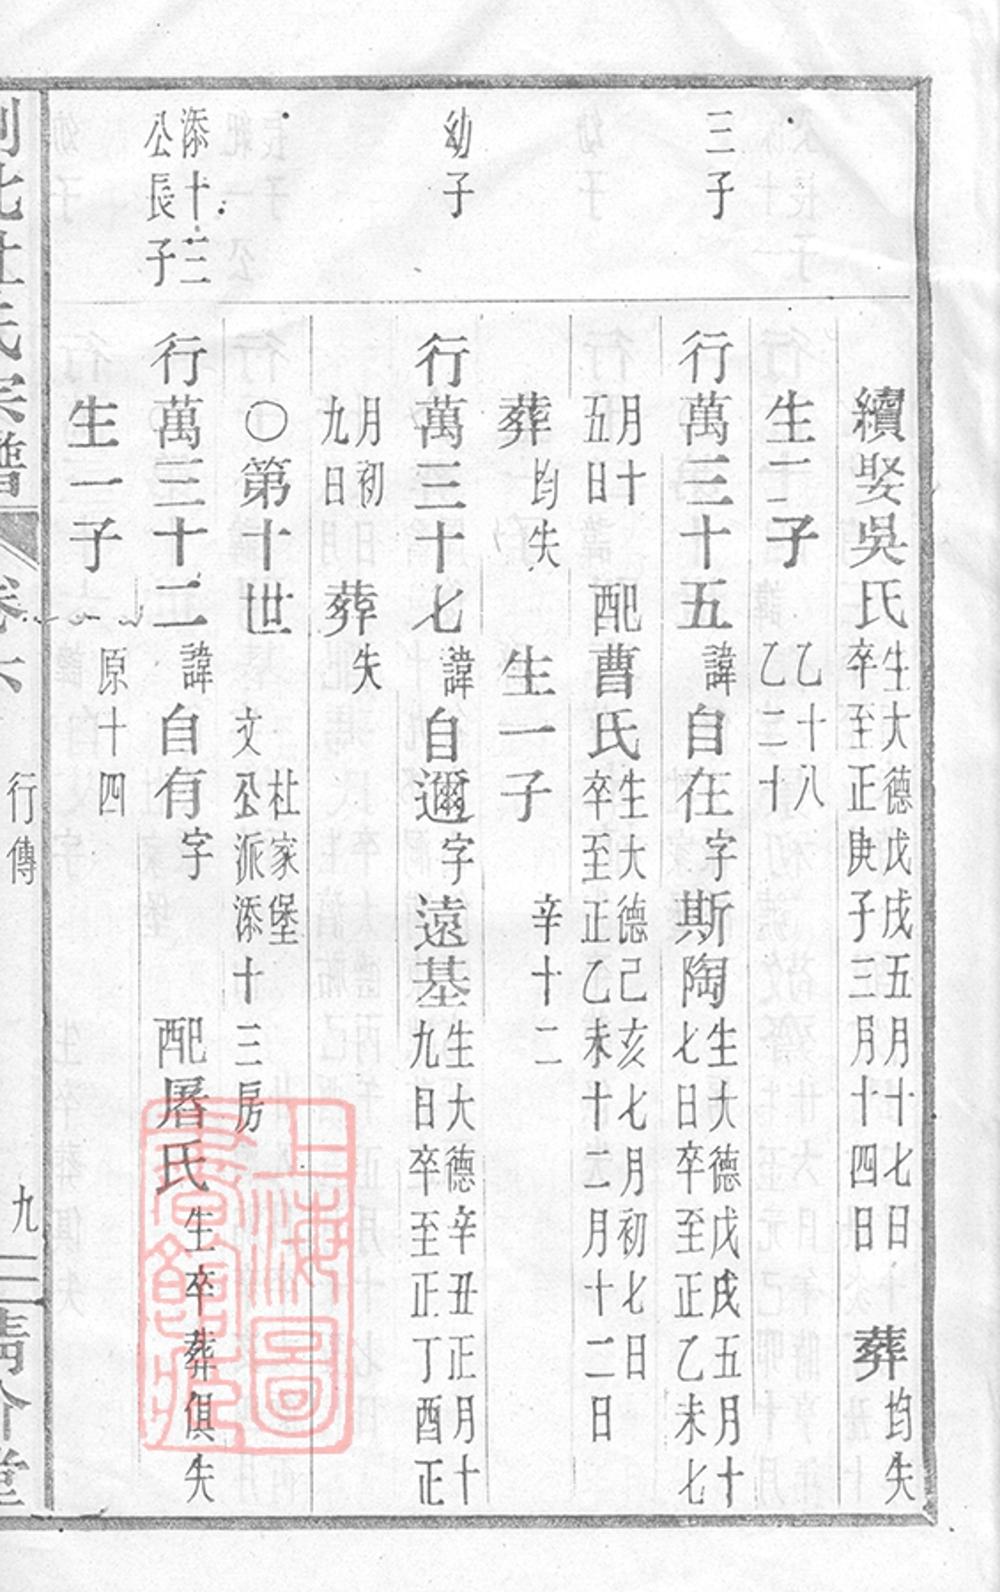 續娶吳氏生大德戊戌五月十七日卒至正庚子三月十四日葬均失
生二子乙十八乙二十
三子
行萬三十五諱自在字斯陶生大德戊戌五月十七日卒至正乙未七
月十五日配曹氏生大德己亥七月初七日卒至正乙未十二月十二日
葬均失生一子辛十二
幼子
行萬三十七諱自邇字遠基生大德辛丑正月十九日卒至正丁酉正
月初九日葬失
〇第十世杜家堡文公派添十三房
添十三公長子
行萬三十二諱自有字配屠氏生卒葬俱失
生一子原十四
杜氏宗譜
卷六
行傳
九
上海圖書館藏